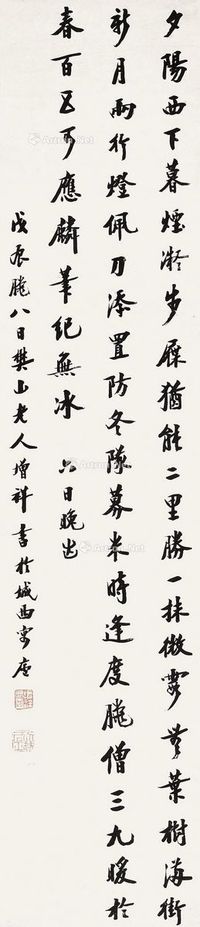 夕陽西下暮煙凝步屧猶能二里勝一抹微霞無葉樹街
新月兩行燈佩刀添置防冬隊募米時逢度臘僧三九暖於
春百五可應麟筆紀無冰 六日晚出
戊辰臘八日樊山老人增祥書於城西寓廬